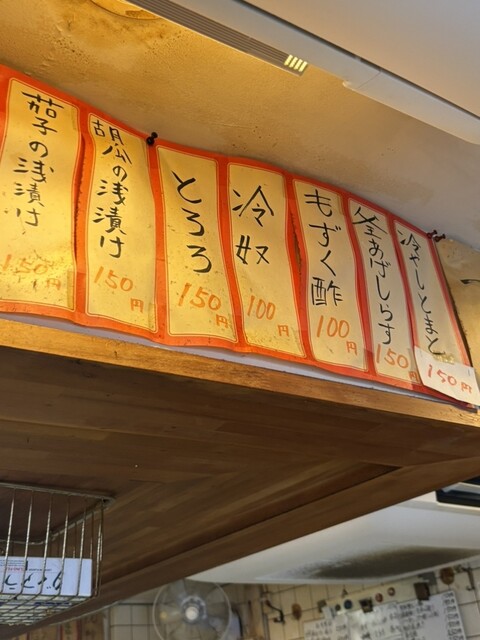 冷やしとまと
150円
釜あげしらす
150円
もずく酢
100円
冷奴
100円
とろろ
150円
胡瓜の浅漬け
150円
茄子の浅漬け
150円